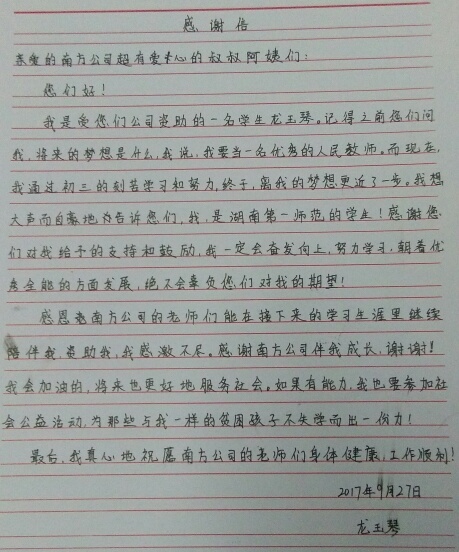 感谢信
亲爱的南方公司超有爱心的叔叔阿姨们:
您们好!
我是受您们公司资助的一名学生龙玉琴。记得之前您们问
我,将来的梦想是什么,我说,我要当一名优秀的人民教师。而现在,
我通过初三的刻苦学习和努力,终于,离我的梦想更近了一步。我想
大声而自豪地告诉您们,我,是湖南第一师范的学生!感谢您
们对我给予的支持和鼓励,我一定会奋发向上,努力学习,朝着优
秀全能的方面发展,绝不会辜负您们对我的期望!
感恩南方公司的老师们能在接下来的学习生涯里继续
陪伴我,资助我,我感激不尽。感谢南方公司伴我成长,谢谢!
我会加油的,将来也更好地服务社会。如果有能力,我也要参加社
会公益活动,为那些与我一样的贫困孩子不失学而出一份力!
最后,我真心地祝愿南方公司的老师们身体健康,工作顺利!
2017年9月27日
龙玉琴